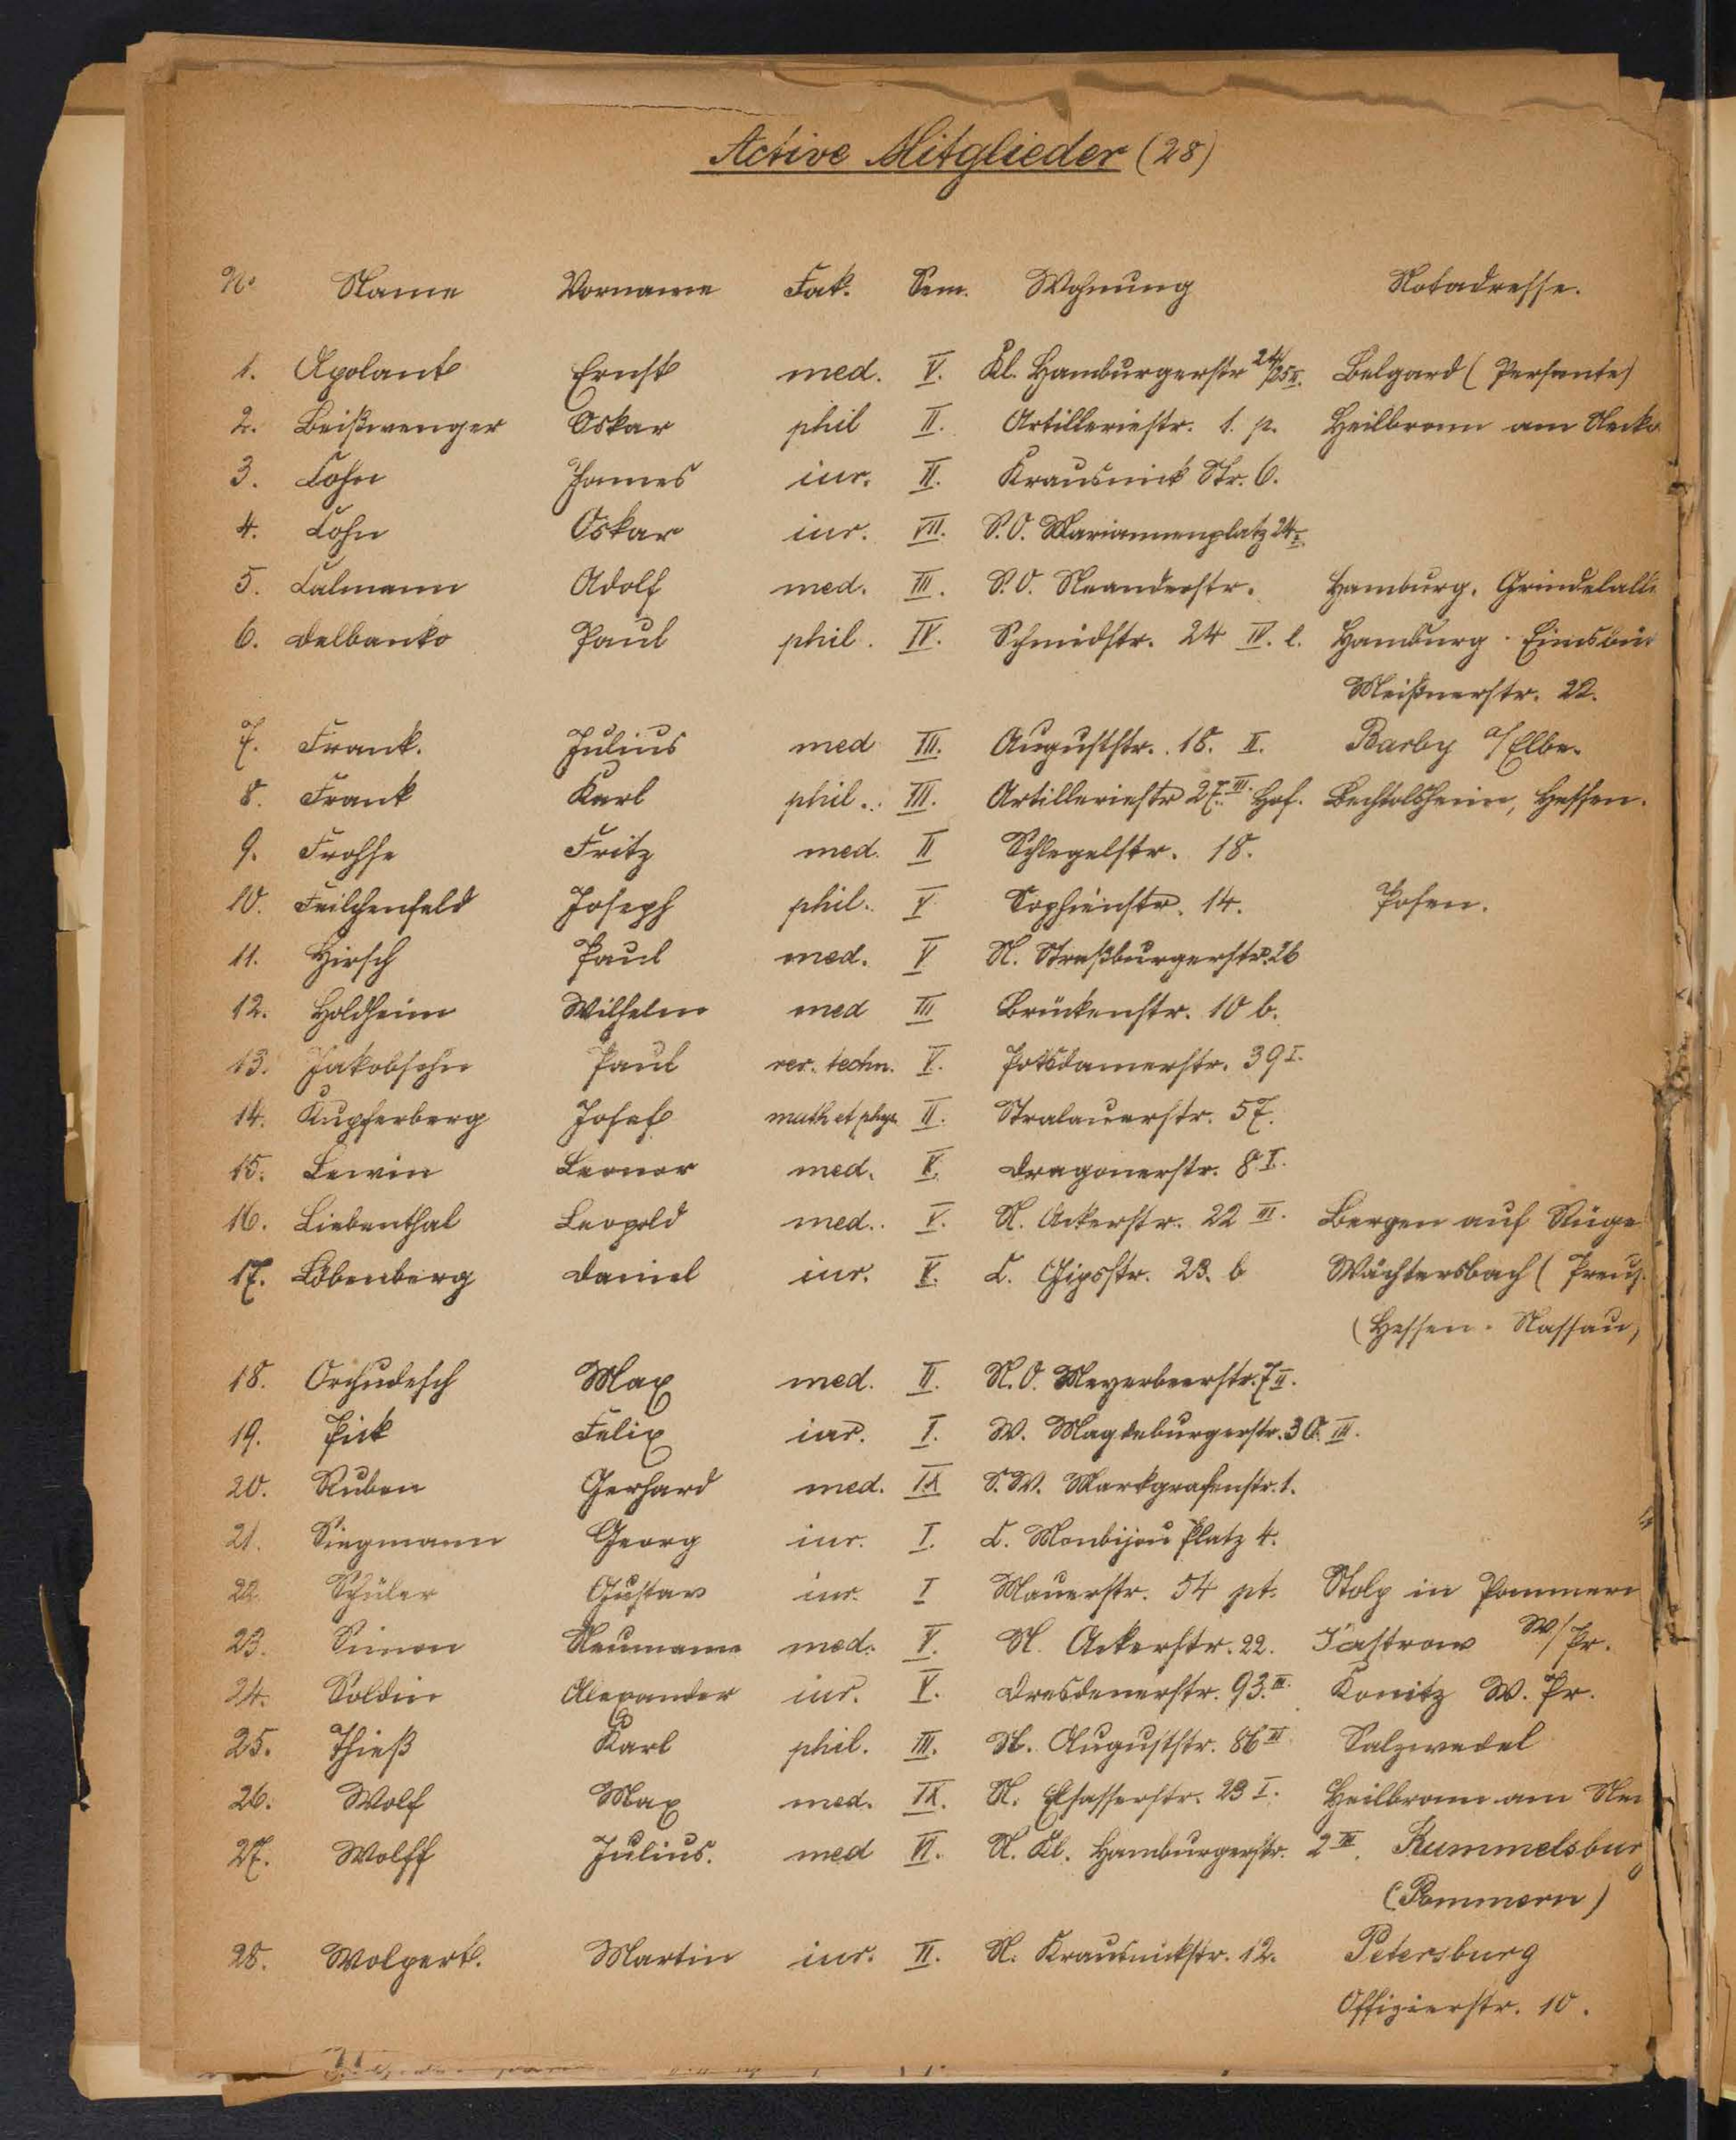 Active Mitglieder (28)
No Name Vorname Fak. Sem. Wohnung Notadresse.
1. Apolant Ernst med. V. Kl. Hamburgerstr 24/25 II. Belgard (Persante)
2. Beißwenger Oskar phil II. Artilleriestr. 1. p. Heilbronn am Neck
3. Cohn James iur. II. Krausnick Str. 6.
4. Cohn Oskar iur. VII. S.O. Mariannenplatz 24 I.
5. Calmann Adolf med. III. S.O. Neanderstr. Hamburg, Grindelalle
6. Delbanko Paul phil. IV. Schmidstr. 24 IV. l. Hamburg. Eimsbüt
Meißnerstr. 22.
7. Frank. Julius med III. Auguststr. 18. II. Barby a/Elbe.
8. Frank Karl phil. III. Artilleriestr 27. III. Hof. Bechtolsheim, Hessen.
9. Frohse Fritz med. II Schlegelstr. 18.
10. Feilchenfeld Joseph phil. V Sophienstr. 14. Posen.
11. Hirsch Paul med. V N. Straßburgerstr. 26
12. Holdheim Wilhelm med III Brückenstr. 10 b.
13. Jakobsohn Paul rer. techn. V. Potsdamerstr. 39 I.
14. Kupferberg Josef math et phys. II. Stralauerstr. 57.
15. Lewin Leonor med. V. Dragonerstr. 8 I.
16. Liebenthal Leopold med. V. N. Ackerstr. 22 III. Bergen auf Rüge
17. Löbenberg Daniel iur. V. C. Gipsstr. 23. b Wächtersbach (Preuß.
(Hessen-Nassau)
18. Orchudesch Max med. II. N.O. Meyerbeerstr. 7 II.
19. Pick Felix iur. I. W. Magdeburgerstr. 30. III.
20. Ruben Gerhard med. IX S.W. Markgrafenstr. 1.
21. Siegmann Georg iur. I. C. Monbijou Platz 4.
22. Schüler Gustav iur. I Mauerstr. 54 pt. Stolp in Pommern
23. Simon Neumann med. V. N. Ackerstr. 22. Jastrow W/Pr.
24. Soldin Alexander iur. V. Dresdenerstr. 93. III. Konitz W. Pr.
25. Thieß Karl phil. III. N. Auguststr. 86 III Salzwedel
26. Wolf Max med. IX. N. Elsasserstr. 23 I. Heilbronn am Nec
27. Wolff Julius. med VI. N. Kl. Hamburgerstr. 2 III. Rummelsburg
(Pommern)
28. Wolpert. Martin iur. II. N. Krausnickstr. 12. Petersburg
Offizierstr. 10.